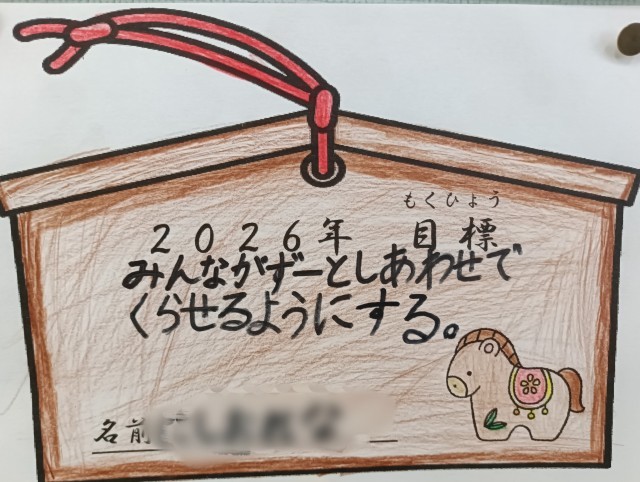 もくひょう
2026年 目標
みんながずーとしあわせで
くらせるようにする。
名前